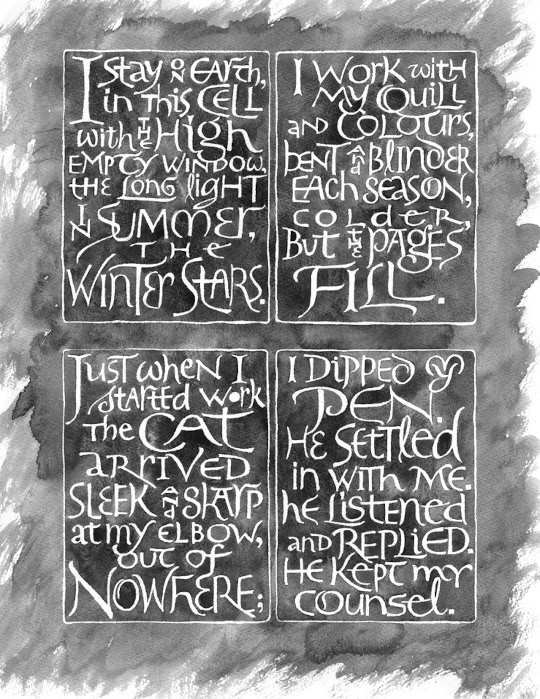 I Stay ON EARTH,
in THIS CELL
with THE High
EMPTY WINDOW,
THE LONG ligHT
IN SUMMER,
THE
WINTER STARS.
I WORK with
MY QUILL
AND COLOURS,
BENT And BLINDER
EACH SEASON,
COLDER,
BUT THE PAGES
FILL.
JUST wheN I
started work
The CAT
ARRIVED
SLEEK And SHARP
at my ELBOW,
OUT of
NOWHERE;
I DIPPED my
PEN.
HE SETTLED
in WITH ME.
HE LISTENED
AND REPLIED.
HE KEPT my
COUNSEL.